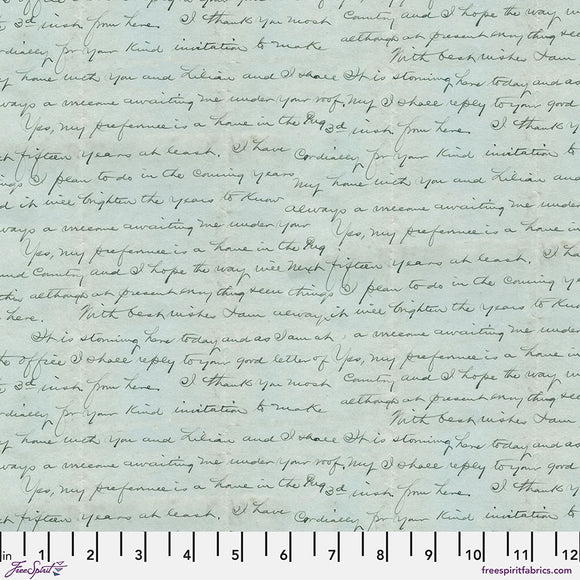 office I shall reply to your good letter of
3rd inst from here. I thank you most Country and I hope the way w
ordially for your kind invitation to make although at present everything see
With best wishes I am
my home with you and Lilian and I shall It is storming here today and as
ways a welcome awaiting me under your roof. My I shall reply to your good
Yes, my preference is a home in the 3rd inst from here. I thank y
t fifteen years at least. I have Cordially for your kind invitation to
ings I plan to do in the coming years my home with you and Lilian and
d it will brighten the years to know always a welcome awaiting me unde
ways a welcome awaiting me under your Yes, my preference is a hom
Yes, my preference is a home in the
und Country and I hope the way will Next fifteen years at least. I ha
this although at present everything seem things I plan to do in the coming y
here. With best wishes I am always, it will brighten the years to know
It is storming here today and as I am at, a welcome awaiting me unde
office I shall reply to your good letter of Yes, my preference is a home in
3rd inst from here. I thank you most Country and I hope the way w
ordially for your kind invitation to make although at present everything see
With best wishes I am
my home with you and Lilian and I shall It is storming here today and as
ways a welcome awaiting me under your roof. My I shall reply to your good
Yes, my preference is a home in the 3rd inst from here. I thank y
t fifteen years at least. I have Cordially for your kind invitation to
in 1 2 3 4 5 6 7 8 9 10 11 12
FreeSpirit freespiritfabrics.com